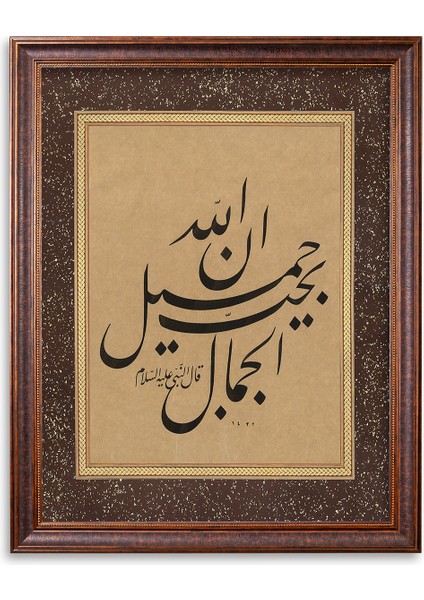 ان الله
جميل
يحب
الجمال
قال النبي عليه السلام
١٤٢٢